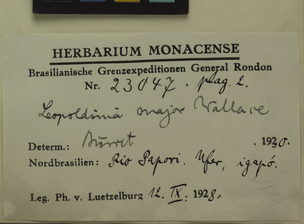 HERBARIUM MONACENSE
Brasilianische Grenzexpeditionen General Rondon
Nr. 23047. plag. 2.
Leopoldinia major Wallace
Determ.: Burret . 1930.
Nordbrasilien: Rio Papori. Ufer, igapó.
Leg. Ph. v. Luetzelburg 12. IX. 1928.